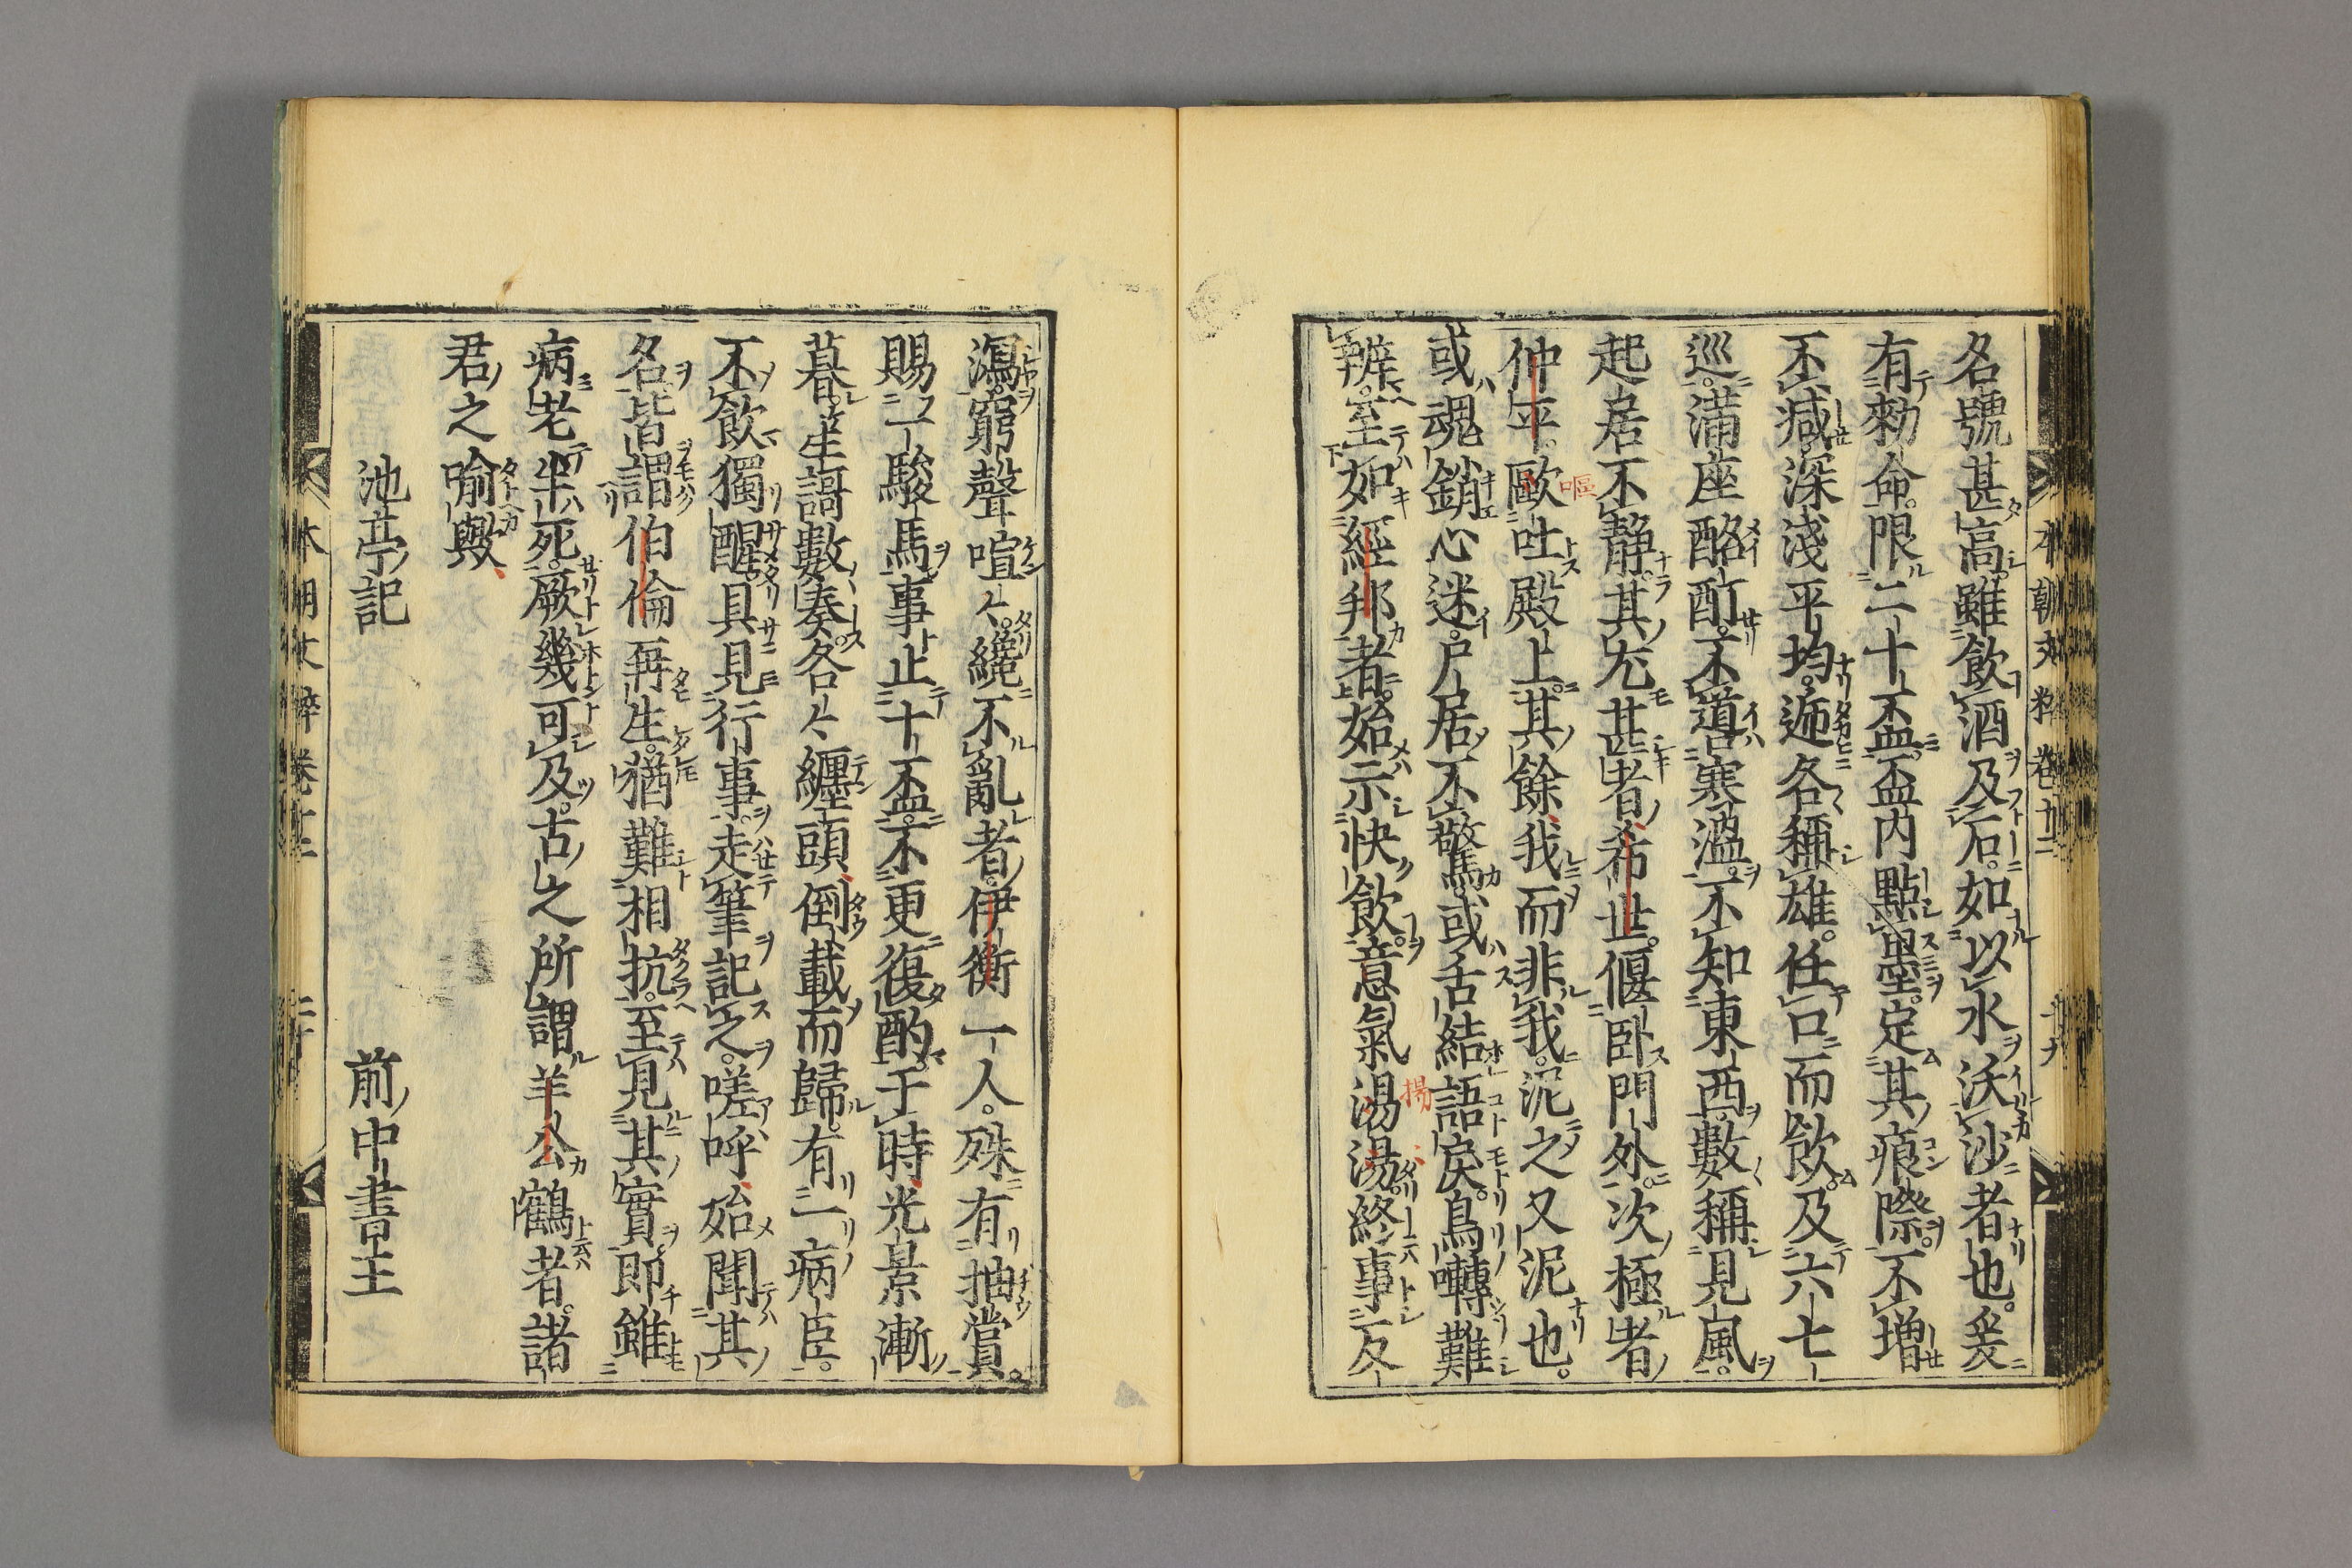 名號甚高。雖飲酒及石。如以水沃沙者也。爰
有勅命。限二十盃。盃内點墨。定其痕際。不増
不減。深淺平均。遞各稱雄。任口而飲。及六七
巡。滿座酩酊。不噵寒温。不知東西。數稱見風。
起居不靜。其尤甚者希世。偃臥門外。次極者
仲平。歐吐殿上。其餘我而非我。泥之又泥也。
嘔
或魂銷心迷。戸居不驚。或舌結語戾。鳥囀難
辨。至如經邦者。始示快飲。意氣湯湯。終事反
揚
瀉。窮聲喧々。纔不亂者。伊衡一人。殊有抽賞。
賜一駿馬。事止十盃。不更復酌。于時光景漸
暮。笙謌數奏。各々纏頭。倒載而歸。有一病臣。
不飲獨醒。具見行事。走筆記之。嗟呼始聞其
名。皆謂伯倫再生。猶難相抗。至見其實。即雖
病老半死。厥幾可及。古之所謂羊公鶴者。諸
君之喻歟
池亭記　前中書王
本朝文粹卷十二　十九
本朝文粹卷十二　二十